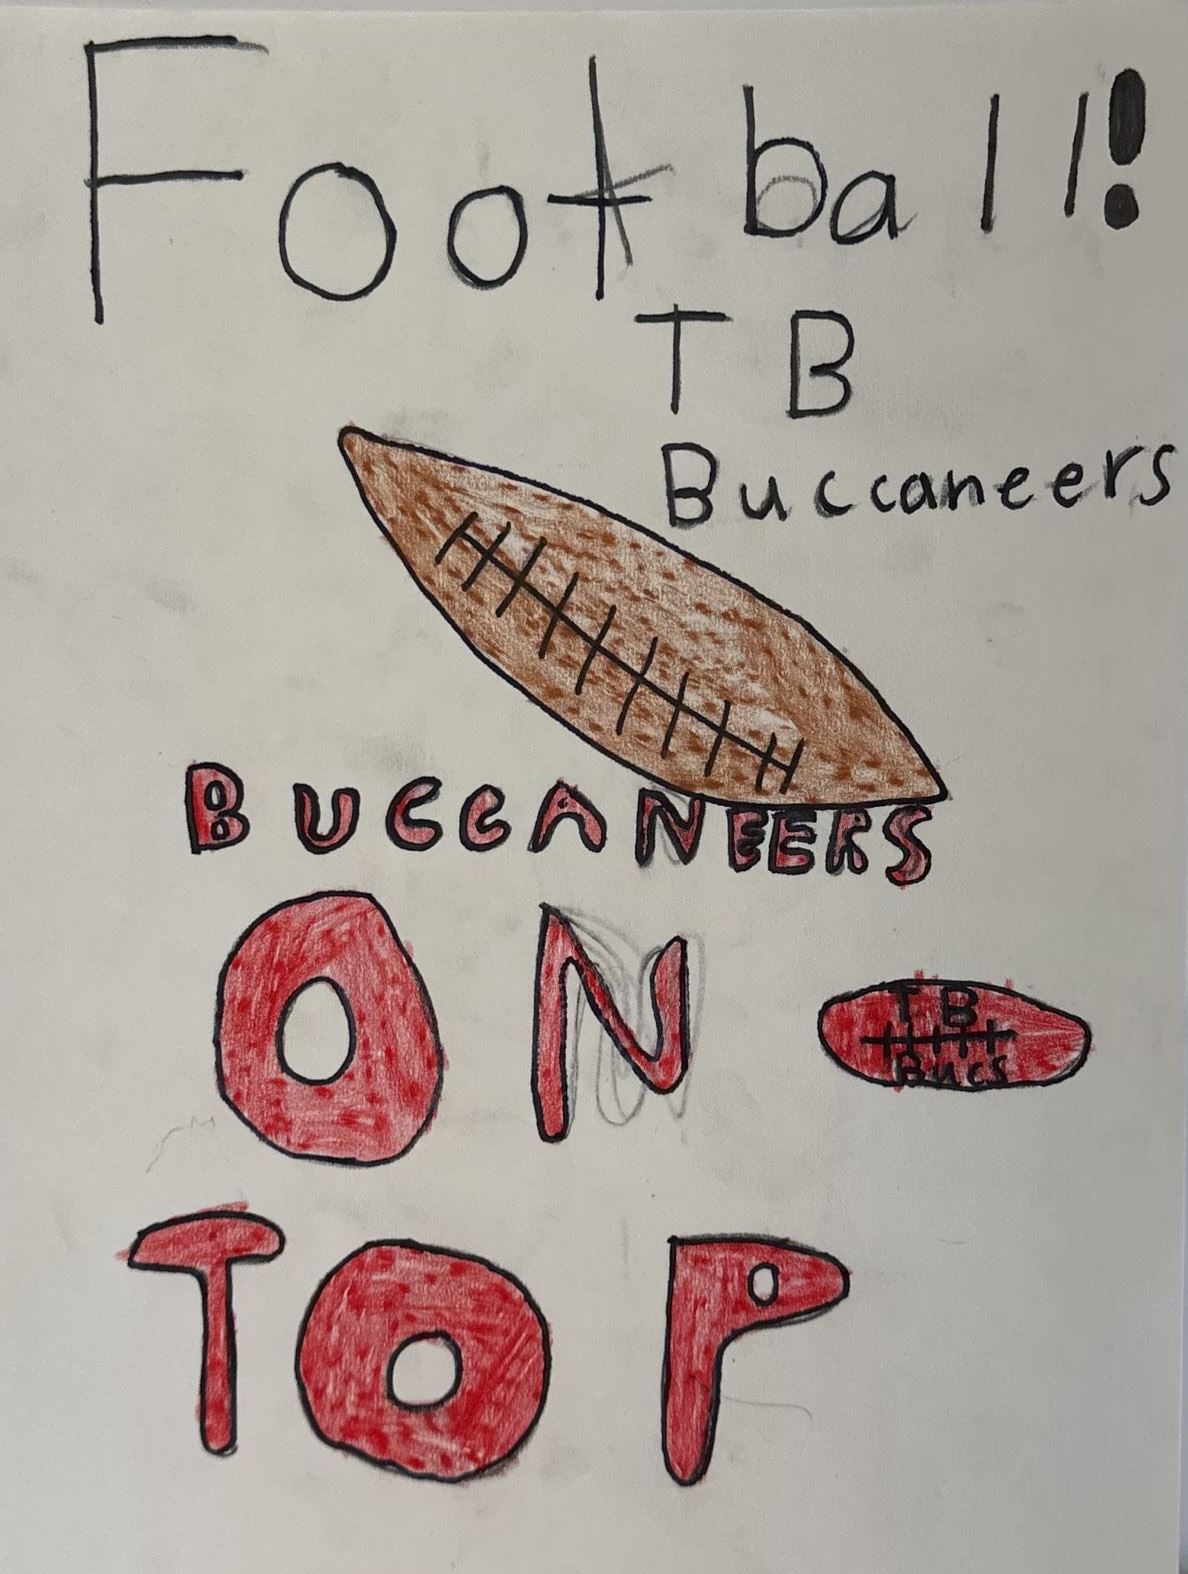 Football!
TB
Buccaneers
BUCCANEERS
ON
TB
Bucs
TOP